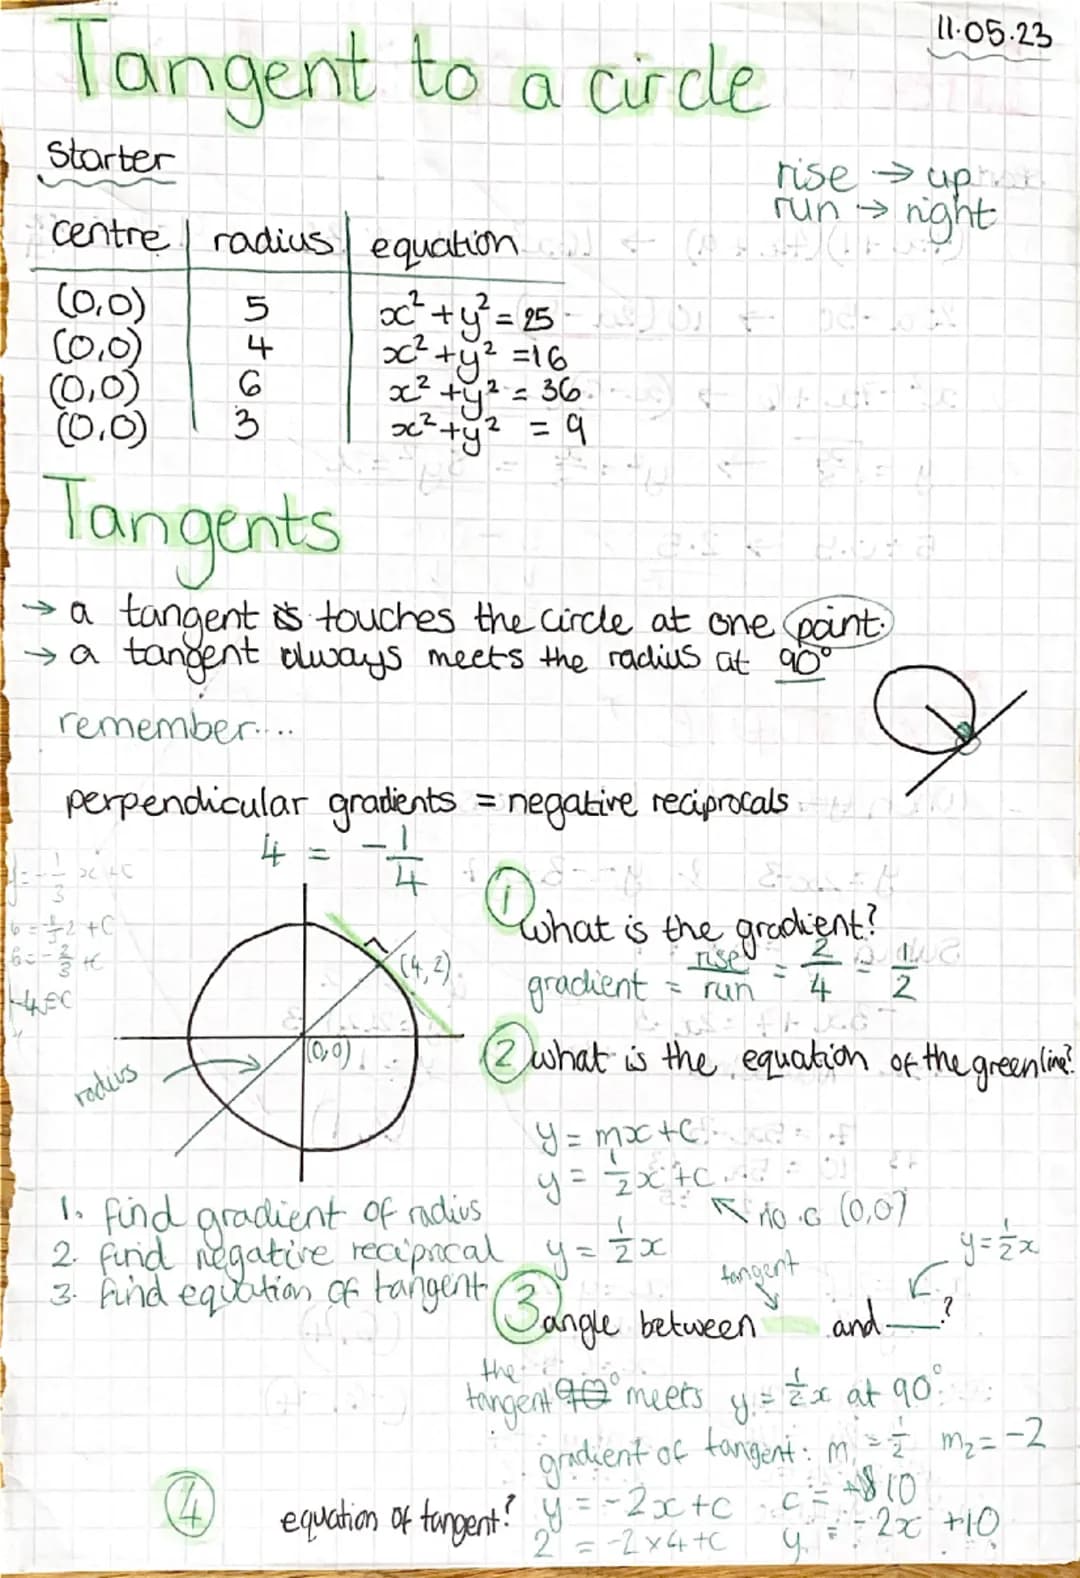 11.05.23
Tangent to a circle
starter
rise → up
run → right
centre | radius | equation
(0,0) 5 x² + y² = 25
(0,0) 4 x² + y² = 16
(0,0) 6 x² + y² = 36
(0,0) 3 x² + y² = 9
Tangents
→ a tangent is touches the circle at one point.
→ a tangent always meets the radius at 90°
remember....
perpendicular gradients = negative reciprocals
4 = -1/4
y = -1/3 x + c
6 = -1/3 2 + C
6 = -2/3 + c
(4,2)
(0,0)
radius
① what is the gradient?
gradient = rise/run = 2/4 = 1/2
② what is the equation of the green line?
y = mx + c
y = 1/2 x + c
no c (0,0)
y = 1/2 x
1. find gradient of radius
2. find negative reciprocal
3. find equation of tangent
tangent
y = 1/2 x
③ angle between and ?
the
tangent 90° meets y = 1/2 x at 90°
gradient of tangent: m = 1/2 m₂ = -2
④ equation of tangent? y = -2x + c c = 10
2 = -2 x 4 + c y = -2x + 10